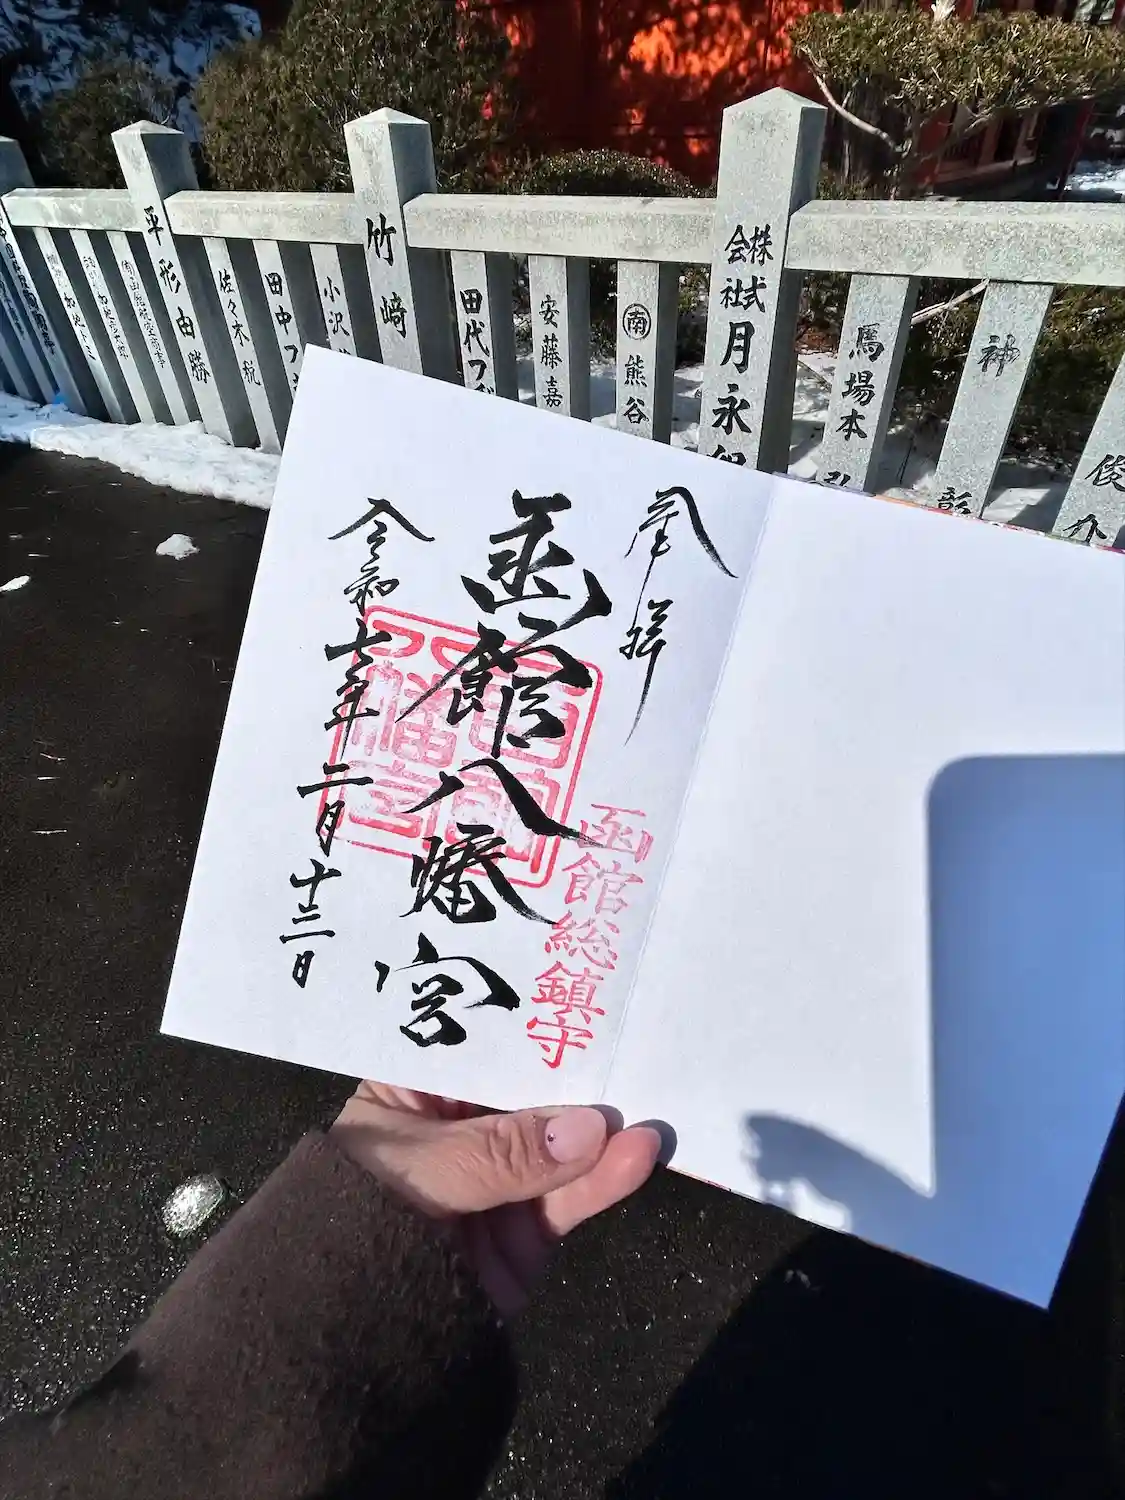 奉拝
函館八幡宮
令和七年二月十三日
函館総鎮守
函館八幡宮
平形由勝
佐々木
田中
小沢
竹﨑
田代
安藤嘉
南
熊谷
株式会社
月永
馬場本
神
彰
俊